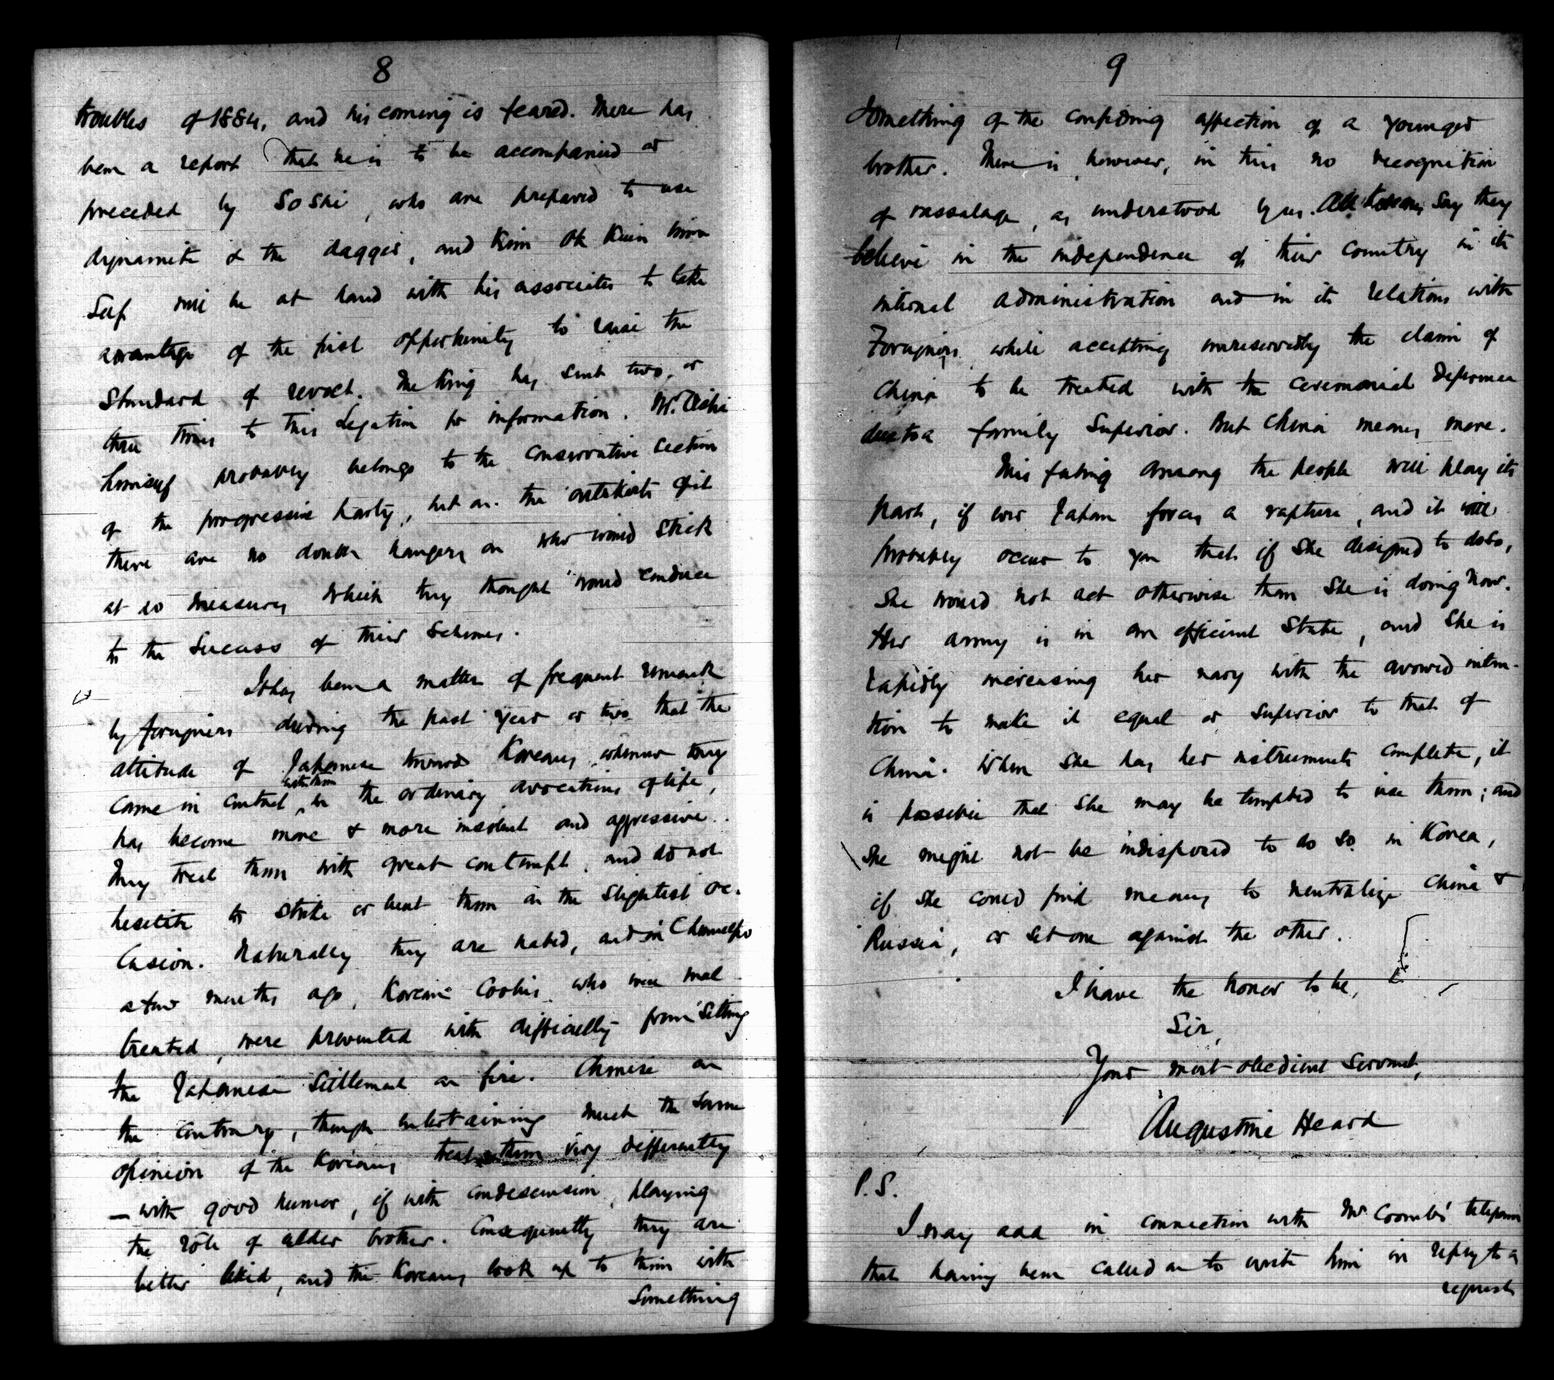 8
troubles of 1884, and his coming is feared. There has
been a report that he is to be accompanied or
preceded by Soshi, who are prepared to use
dynamite & the dagger, and Kim Ok Kiun him
self will be at hand with his associates to take
advantage of the first opportunity to raise the
standard of revolt. The King has sent two, or
three times to this Legation for information. Mr.
himself probably belongs to the conservative section
of the progressive party, but on the outskirts of it
there are no doubt hangers on who would stick
at no measures which they thought would conduce
to the success of their schemes.
It has been a matter of frequent remark
by foreigners during the past year or two that the
attitude of Japanese toward Koreans, whenever they
came in contact with them in the ordinary avocations of life,
has become more & more insolent and aggressive.
They treat them with great contempt, and do not
hesitate to strike or beat them on the slightest oc-
casion. Naturally they are hated, and in Chemulpo
a few months ago, Korean Coolies who were mal
treated, were prevented with difficulty from setting
the Japanese Settlement on fire. Chinese on
the contrary, though entertaining much the same
opinion of the Koreans treat them very differently
— with good humor, if with condescension, playing
the rôle of elder brother. Consequently they are
better liked, and the Koreans look up to them with
Something
9
Something of the confiding affection of a younger
brother. There is, however, in this no recognition
of vassalage, as understood by us. All Koreans say they
believe in the independence of their country in its
internal administration and in its relations with
Foreigners, while accepting unreservedly the claim of
China to be treated with the ceremonial deference
due to a family Superior. But China means more.
This feeling among the people will play its
part, if ever Japan forces a rupture, and it will
probably occur to you that if she designed to do so,
she would not act otherwise than she is doing now.
Her army is in an efficient State, and she is
rapidly increasing her navy with the avowed inten-
tion to make it equal or superior to that of
China. When she has her instruments complete, it
is possible that she may be tempted to use them; and
she might not be indisposed to do so in Korea,
if she could find means to neutralize China &
Russia, or set one against the other.
I have the honor to be,
Sir,
Your most obedient Servant,
Augustine Heard
P.S.
I may add in connection with Mr Coombs' telegram
that having been called on to write him in reply to a
request